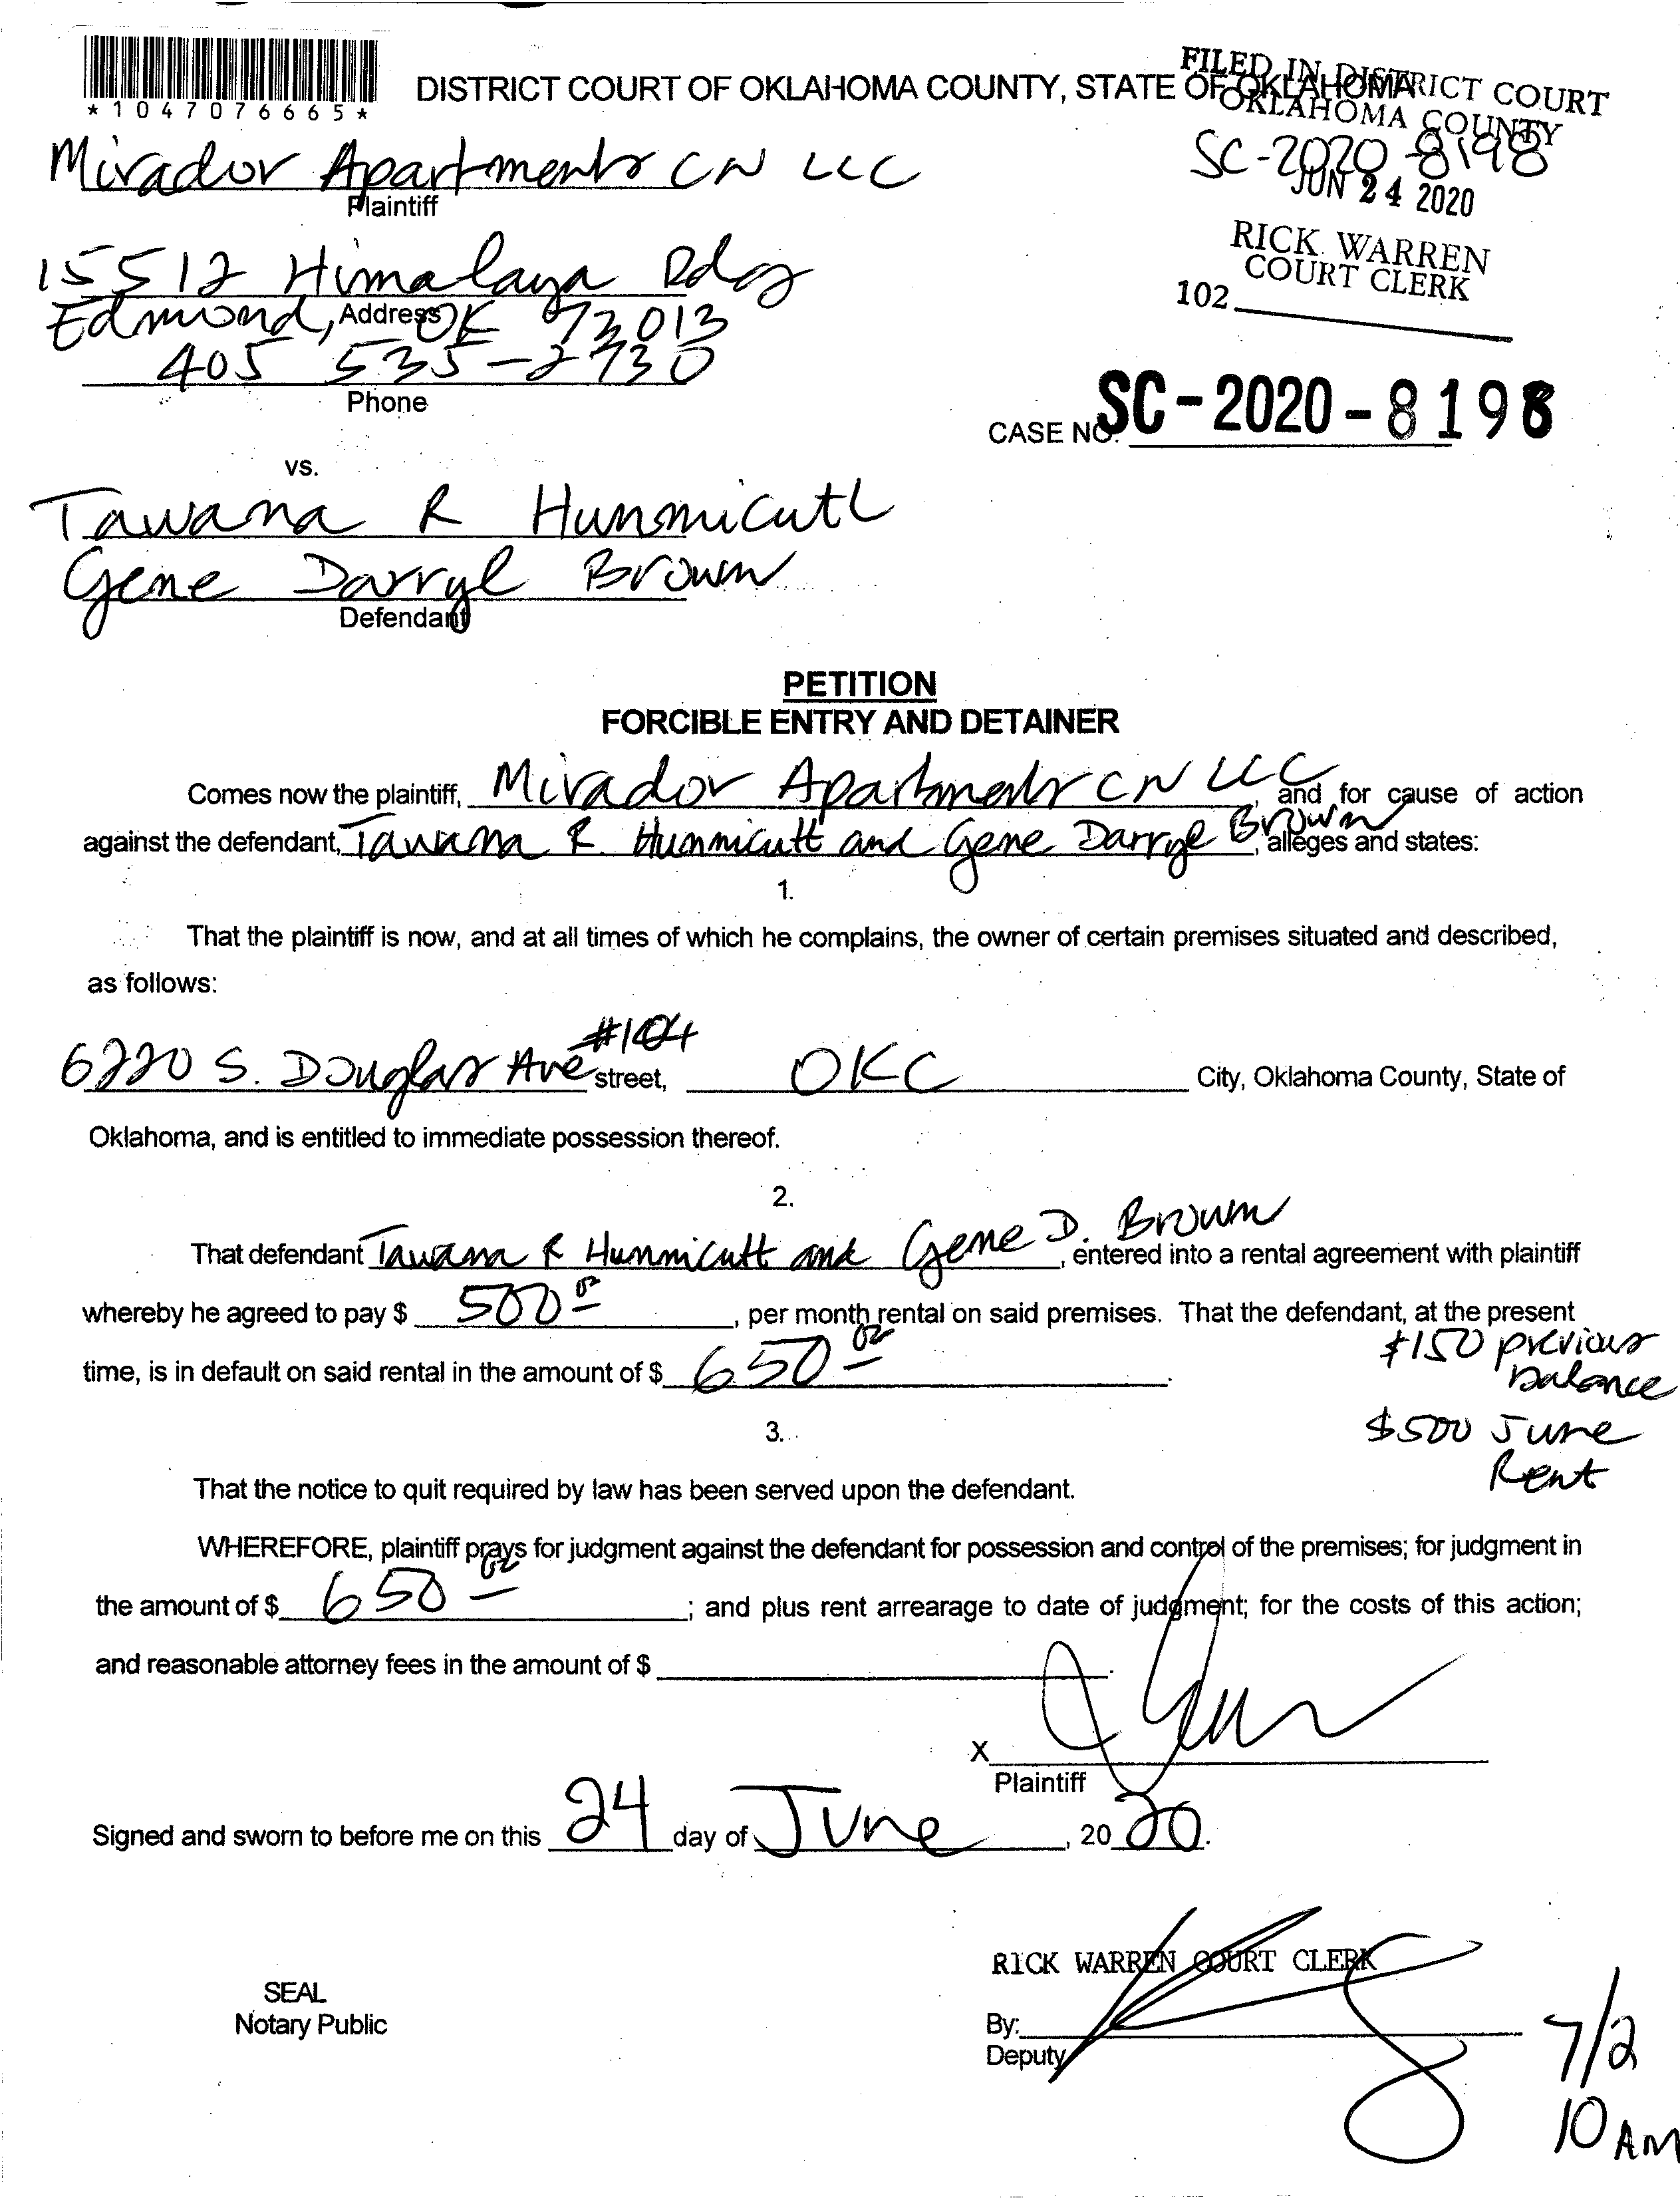 *1047076665*
DISTRICT COURT OF OKLAHOMA COUNTY, STATE OF OKLAHOMA
FILED IN DISTRICT COURT
OKLAHOMA COUNTY
SC-2020-8198
JUN 24 2020
RICK WARREN
COURT CLERK
102
Mirador Apartments CN LLC
Plaintiff
15512 Himalaya Rdg
Edmond, OK 73013
Address
405 535-2730
Phone
CASE NO. SC-2020-8198
vs.
Tawana R Hunnicutt
Gene Darryl Brown
Defendant
PETITION
FORCIBLE ENTRY AND DETAINER
Comes now the plaintiff, Mirador Apartments CN LLC, and for cause of action
against the defendant, Tawana R. Hunnicutt and Gene Darryl Brown, alleges and states:
1.
That the plaintiff is now, and at all times of which he complains, the owner of certain premises situated and described,
as follows:
6220 S. Douglas Ave #104 street, OKC City, Oklahoma County, State of
Oklahoma, and is entitled to immediate possession thereof.
2.
That defendant Tawana R Hunnicutt and Gene D. Brown, entered into a rental agreement with plaintiff
whereby he agreed to pay $ 500 00, per month rental on said premises. That the defendant, at the present
time, is in default on said rental in the amount of $ 650 00.
$150 previous
balance
$500 June
Rent
3.
That the notice to quit required by law has been served upon the defendant.
WHEREFORE, plaintiff prays for judgment against the defendant for possession and control of the premises; for judgment in
the amount of $ 650 00; and plus rent arrearage to date of judgment; for the costs of this action;
and reasonable attorney fees in the amount of $ .
X
Plaintiff
Signed and sworn to before me on this 24 day of June, 2020.
RICK WARREN COURT CLERK
SEAL
Notary Public
By:
Deputy
7/2
10 AM